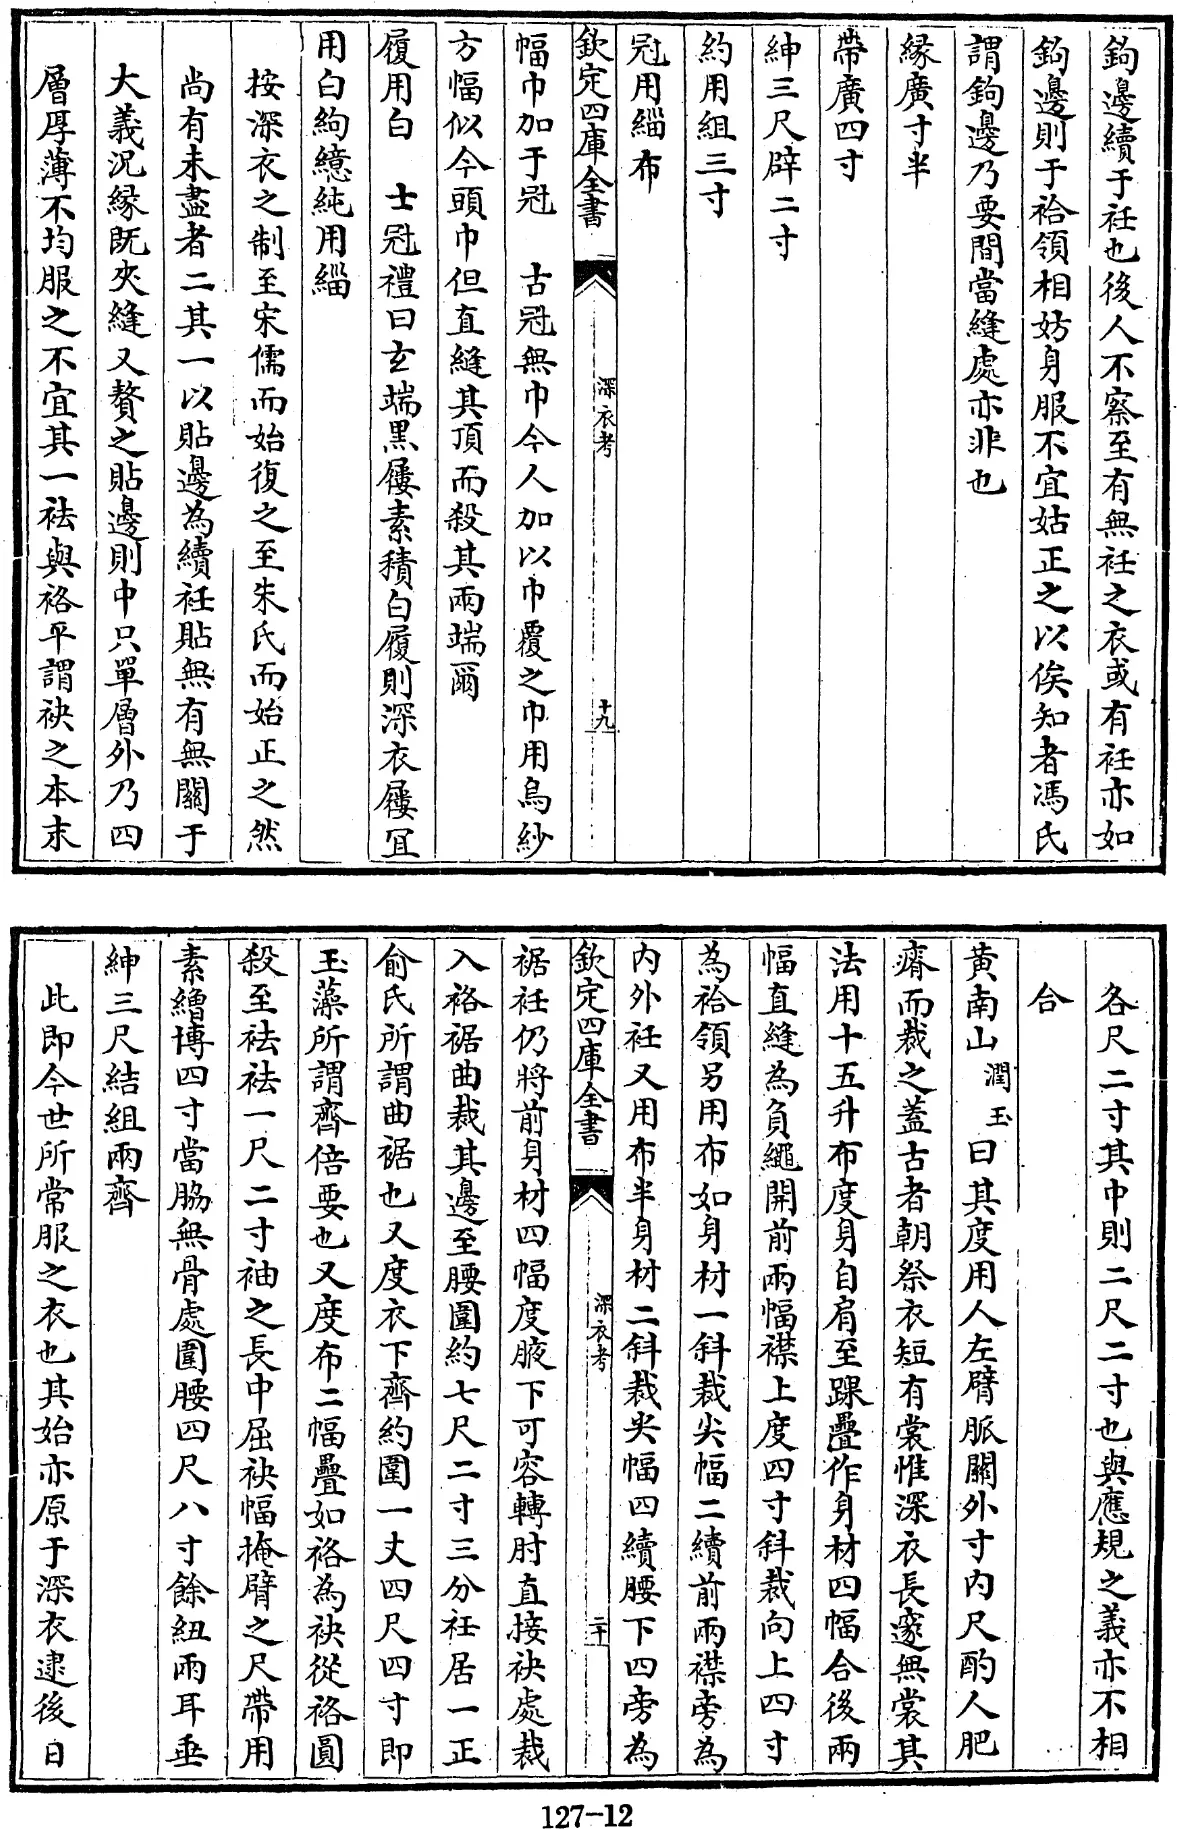 鉤邊續于衽也後人不察至有無衽之衣或有衽亦如
鉤邊則于袷領相妨身服不宜姑正之以俟知者馮氏
謂鉤邊乃要間當縫處亦非也
縁廣寸半
帶廣四寸
紳三尺辟二寸
約用組三寸
冠用緇布
欽定四庫全書
深衣考
十九
幅巾加于冠　古冠無巾今人加以巾覆之巾用烏紗
方幅似今頭巾但直縫其頂而殺其兩端爾
履用白　士冠禮曰玄端黑屨素積白履則深衣屨宜
用白絇繶純用緇
按深衣之制至宋儒而始復之至朱氏而始正之然
尚有未盡者二其一以貼邊為續衽貼無有無關于
大義況縁既夾縫又贅之貼邊則中只單層外乃四
層厚薄不均服之不宜其一袪與袼平謂袂之本末
各尺二寸其中則二尺二寸也與應規之義亦不相
合
黄南山潤玉曰其度用人左臂脈關外寸内尺酌人肥
瘠而裁之蓋古者朝祭衣短有裳惟深衣長邃無裳其
法用十五升布度身自肩至踝疊作身材四幅合後兩
幅直縫為負繩開前兩幅襟上度四寸斜裁向上四寸
為袷領另用布如身材一斜裁尖幅二續前兩襟旁為
内外衽又用布半身材二斜裁尖幅四續腰下四旁為
欽定四庫全書
深衣考
二十
裾衽仍將前身材四幅度腋下可容轉肘直接袂處裁
入袼裾曲裁其邊至腰圍約七尺二寸三分衽居一正
俞氏所謂曲裾也又度衣下齊約圍一丈四尺四寸即
玉藻所謂齊倍要也又度布二幅疊如袼為袂從袼圓
殺至袪袪一尺二寸袖之長中屈袂幅掩臂之尺帶用
素繒博四寸當脇無骨處圍腰四尺八寸餘紐兩耳垂
紳三尺結組兩齊
此即今世所常服之衣也其始亦原于深衣逮後日
127-12